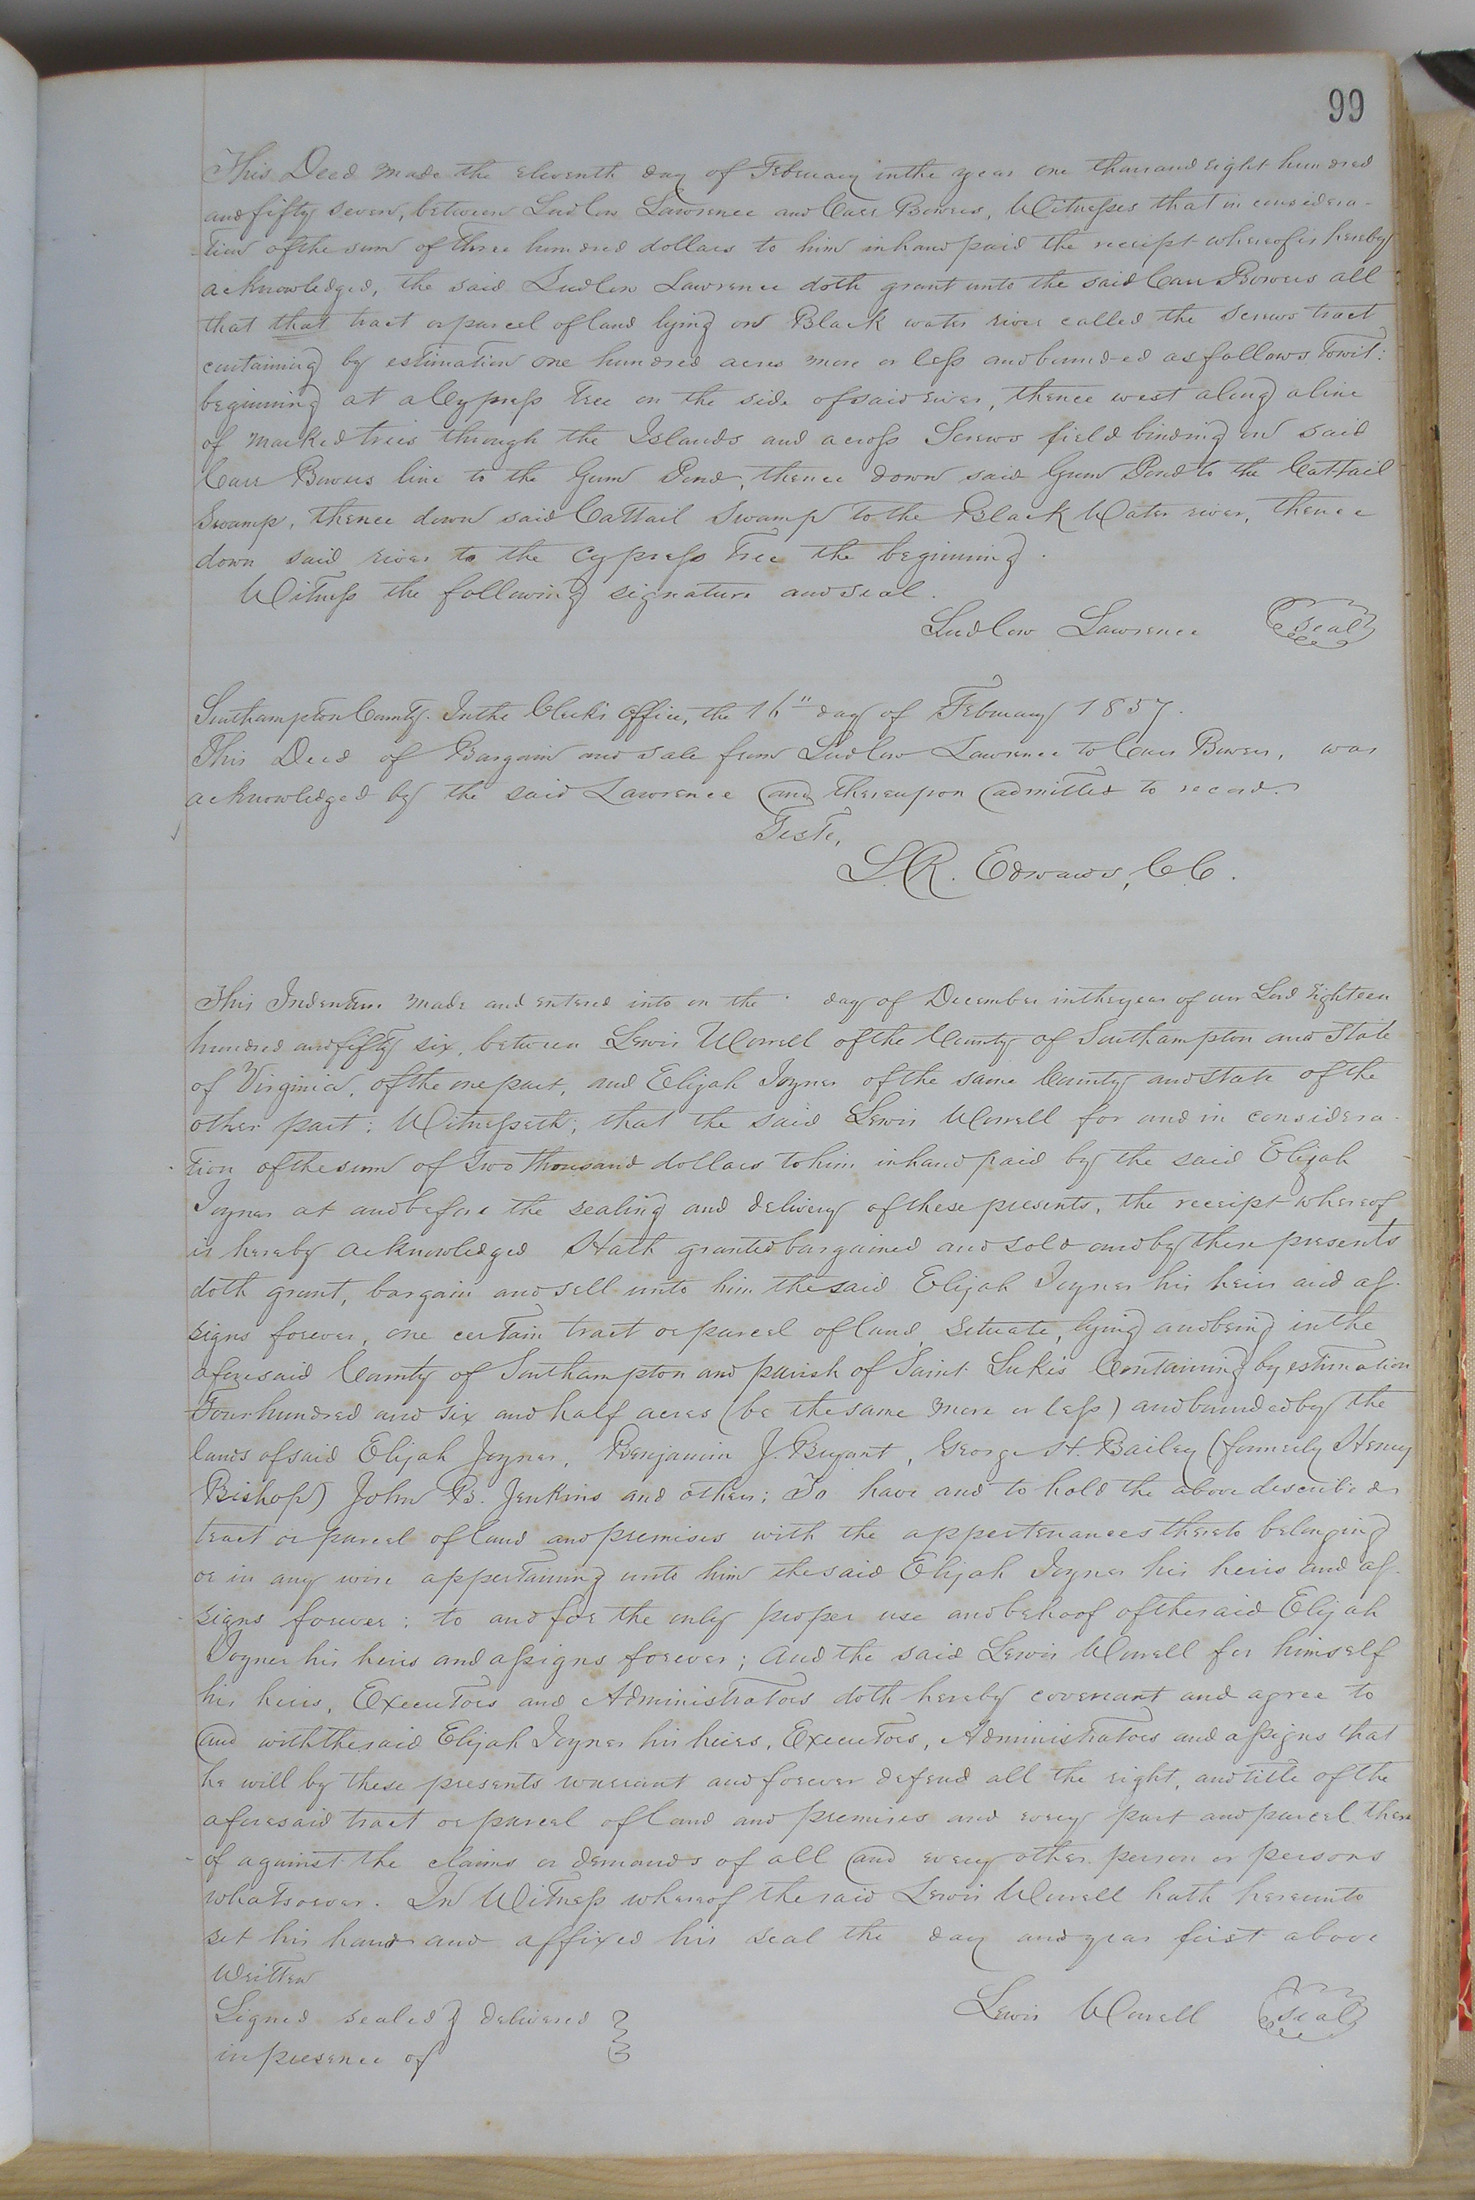 99
This Deed made the eleventh day of February in the year one thousand eight hundred
and fifty seven, between Ludlow Lawrence and Carr Bowers, Witnesses that in considera-
tion of the sum of three hundred dollars to him in hand paid the receipt whereof is hereby
acknowledged, the said Ludlow Lawrence doth grant unto the said Carr Bowers all
that that tract or parcel of land lying on Black water river called the Screws tract
containing by estimation one hundred acres more or less and bounded as follows Towit:
beginning at a Cypress Tree on the side of said river, thence west along a line
of marked trees through the Islands and across Screws field binding on said
Carr Bowers line to the Gum Pond, thence down said Gum Pond to the Cattail
Swamp, thence down said Cattail Swamp to the Black Water river, thence
down said river to the Cypress Tree the beginning.
Witness the following signature and seal.
Ludlow Lawrence seal
Southampton County. In the Clerk's Office, the 16" day of February 1857.
This Deed of Bargain and sale from Ludlow Lawrence to Carr Bowers, was
acknowledged by the said Lawrence and thereupon admitted to record.
Teste,
L.R. Edwards, C.C.
This Indenture made and entered into on the day of December in the year of our Lord Eighteen
hundred and fifty six, between Lewis Worrell of the County of Southampton and State
of Virginia, of the one part, and Elijah Joyner of the same County and State of the
other part: Witnesseth, that the said Lewis Worrell for and in considera-
tion of the sum of Two thousand dollars to him in hand paid by the said Elijah
Joyner at and before the sealing and delivery of these presents, the receipt whereof
is hereby acknowledged Hath granted bargained and sold and by these presents
doth grant, bargain and sell unto him the said Elijah Joyner his heirs and as-
signs forever, one certain tract or parcel of land, situate, lying and being in the
aforesaid County of Southampton and parish of Saint Luke's Containing by estimation
Four hundred and six and half acres (be the same more or less) and bounded by the
lands of said Elijah Joyner, Benjamin J. Bryant, George H. Bailey (formerly Henry
Bishop) John B. Jenkins and others; To have and to hold the above described
tract or parcel of land and premises with the appertenances thereto belonging
or in any wise appertaining unto him the said Elijah Joyner his heirs and as-
signs forever: to and for the only proper use and behoof of the said Elijah
Joyner his heirs and assigns forever; And the said Lewis Worrell for himself
his heirs, Executors and Administrators doth hereby covenant and agree to
and with the said Elijah Joyner his heirs, Executors, Administrators and assigns that
he will by these presents warrant and forever defend all the right, and title of the
aforesaid tract or parcel of land and premises and every part and parcel there
of against the claims or demands of all and every other person or persons
whatsoever. In Witness whereof the said Lewis Worrell hath hereunto
set his hand and affixed his seal the day and year first above
Written
Lewis Worrell seal
Signed sealed & delivered
in presence of